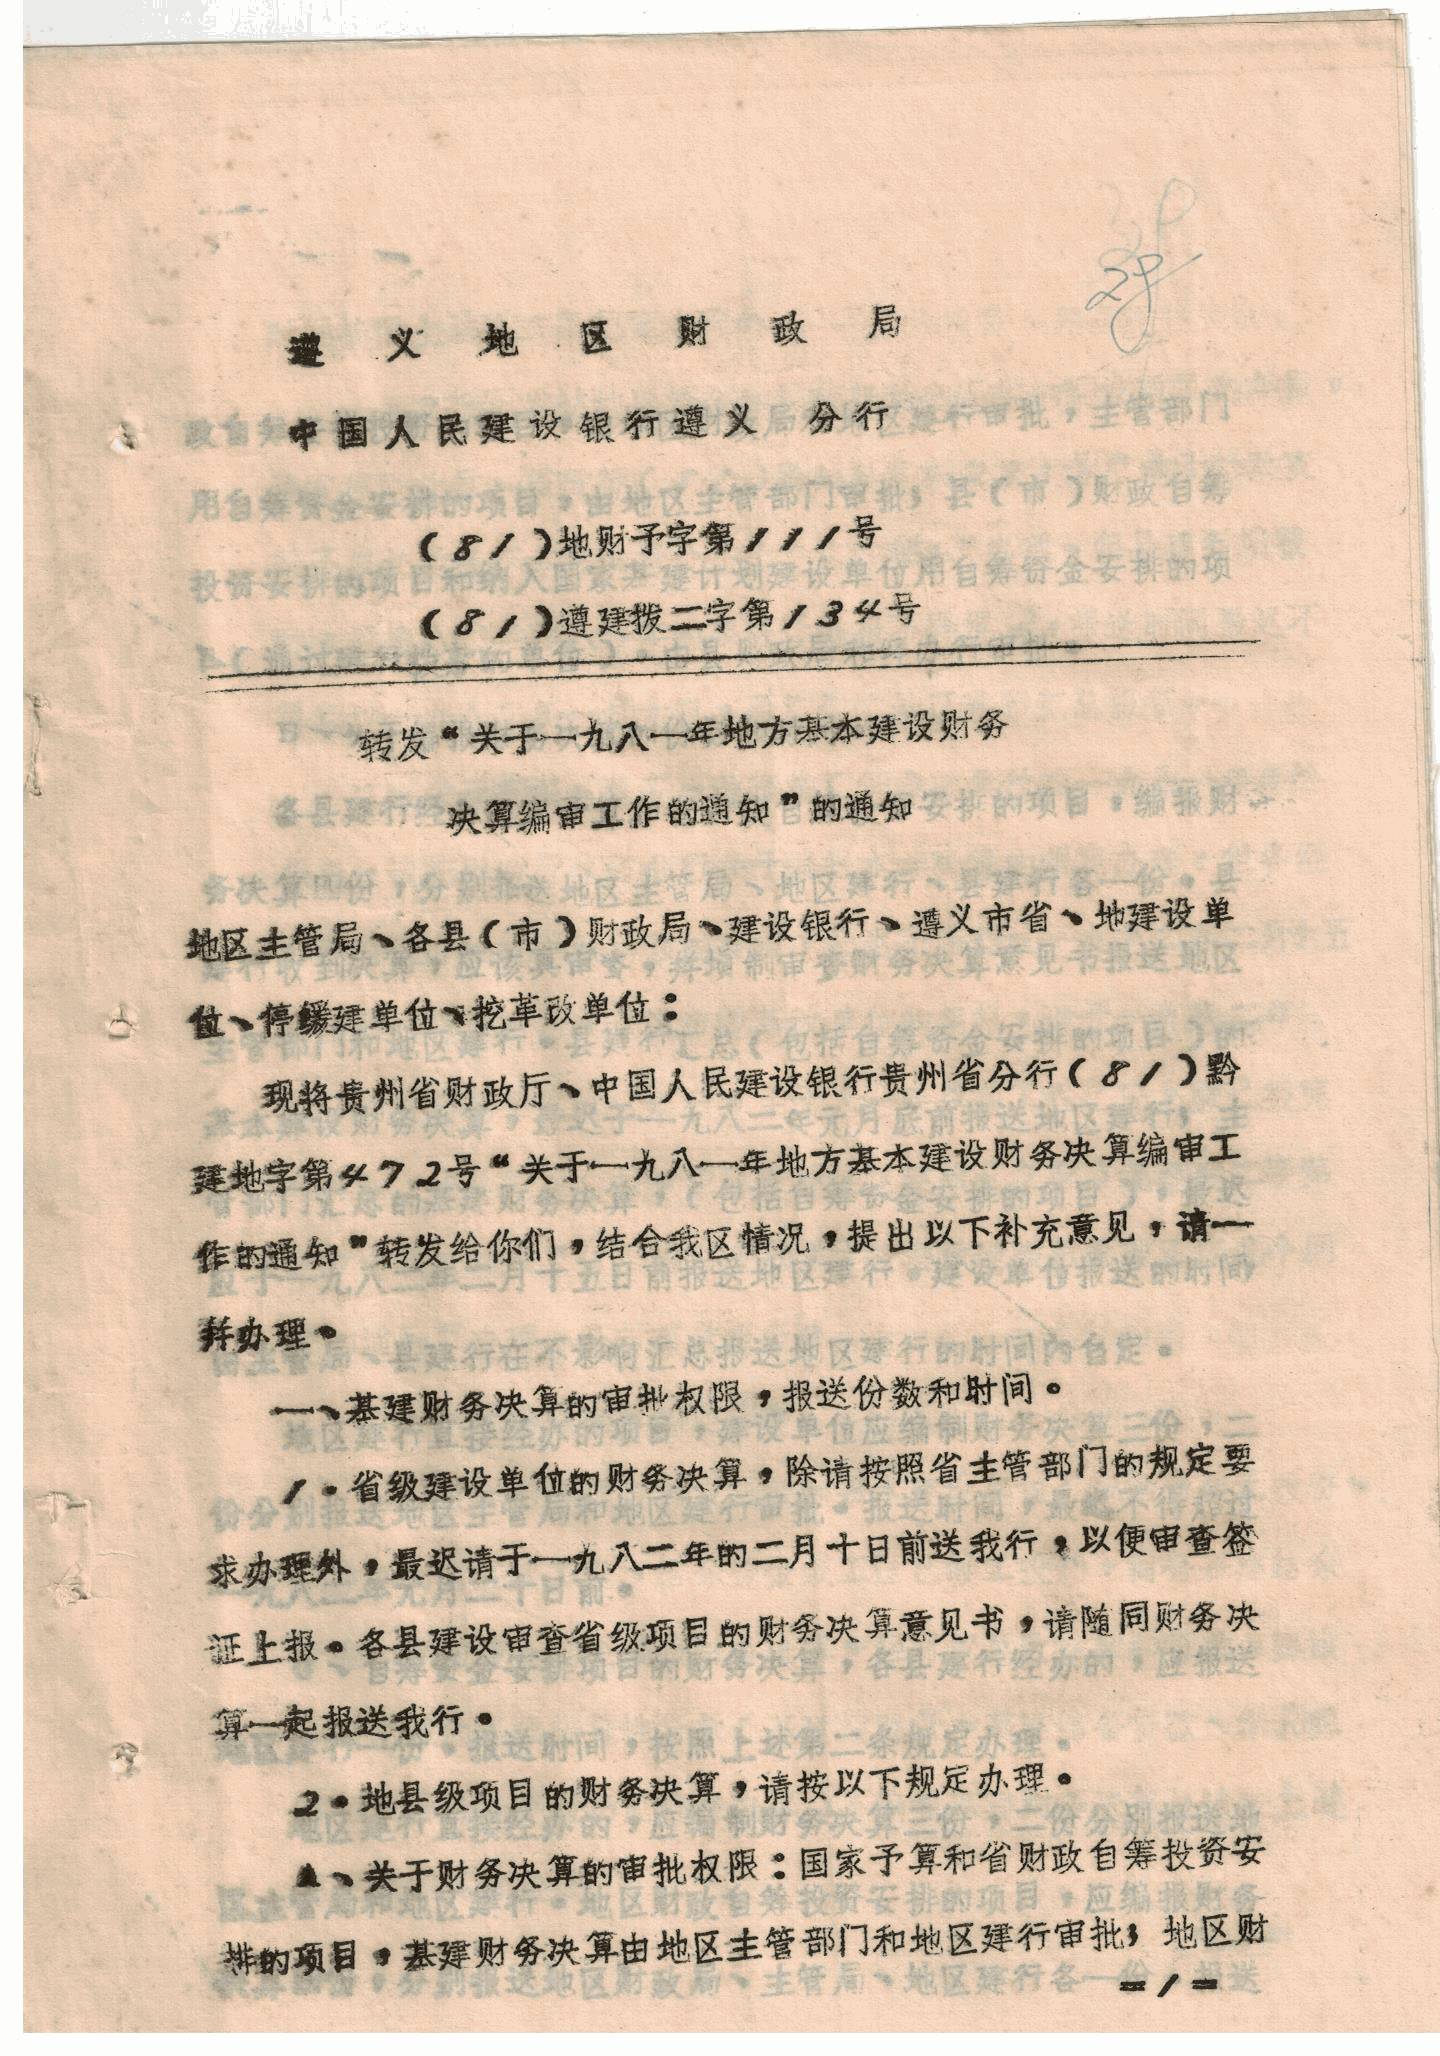 遵义地区财政局
中国人民建设银行遵义分行
(81)地财予字第111号
(81)遵建拨二字第134号
转发“关于一九八一年地方基本建设财务
决算编审工作的通知”的通知
地区主管局、各县(市)财政局、建设银行、遵义市省、地建设单
位、停缓建单位、挖革改单位:
现将贵州省财政厅、中国人民建设银行贵州省分行(81)黔
建地字第472号“关于一九八一年地方基本建设财务决算编审工
作的通知”转发给你们,结合我区情况,提出以下补充意见,请一
并办理。
一、基建财务决算的审批权限,报送份数和时间。
1。省级建设单位的财务决算,除请按照省主管部门的规定要
求办理外,最迟请于一九八二年的二月十日前送我行,以便审查签
证上报。各县建设审查省级项目的财务决算意见书,请随同财务决
算一起报送我行。
2。地县级项目的财务决算,请按以下规定办理。
A、关于财务决算的审批权限:国家予算和省财政自筹投资安
排的项目,基建财务决算由地区主管部门和地区建行审批;地区财
-1-